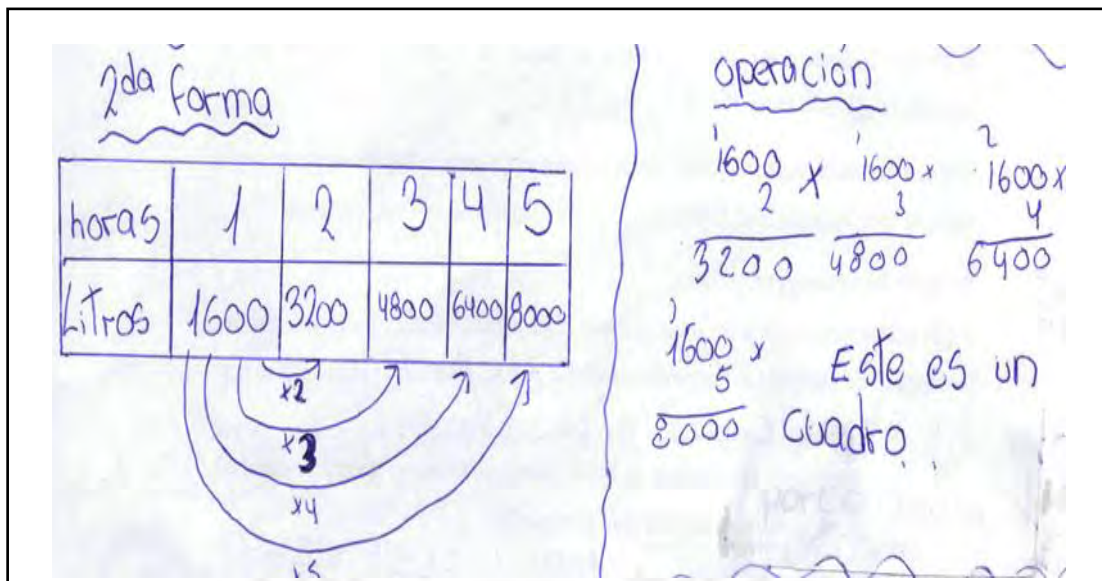 2da forma
horas 1 2 3 4 5
Litros 1600 3200 4800 6400 8000
x2
x3
x4
x5
operación
1 1 2
1600 x 1600 x 1600 x
2 3 4
3200 4800 6400
1600 x
5
8000
Este es un
cuadro.